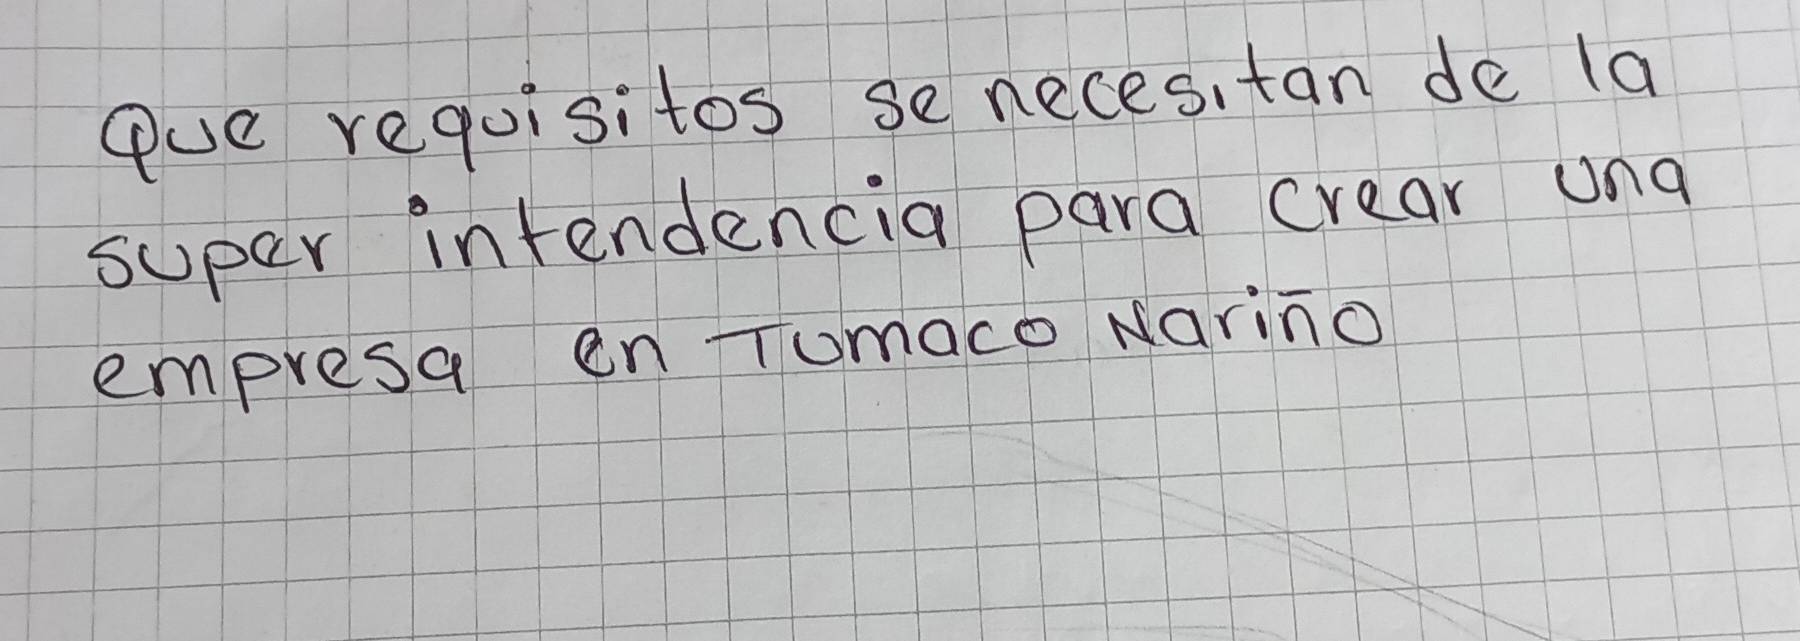 Que requisitos se necesitan de la
super intendencia para crear una
empresa en Tumaco Nariño